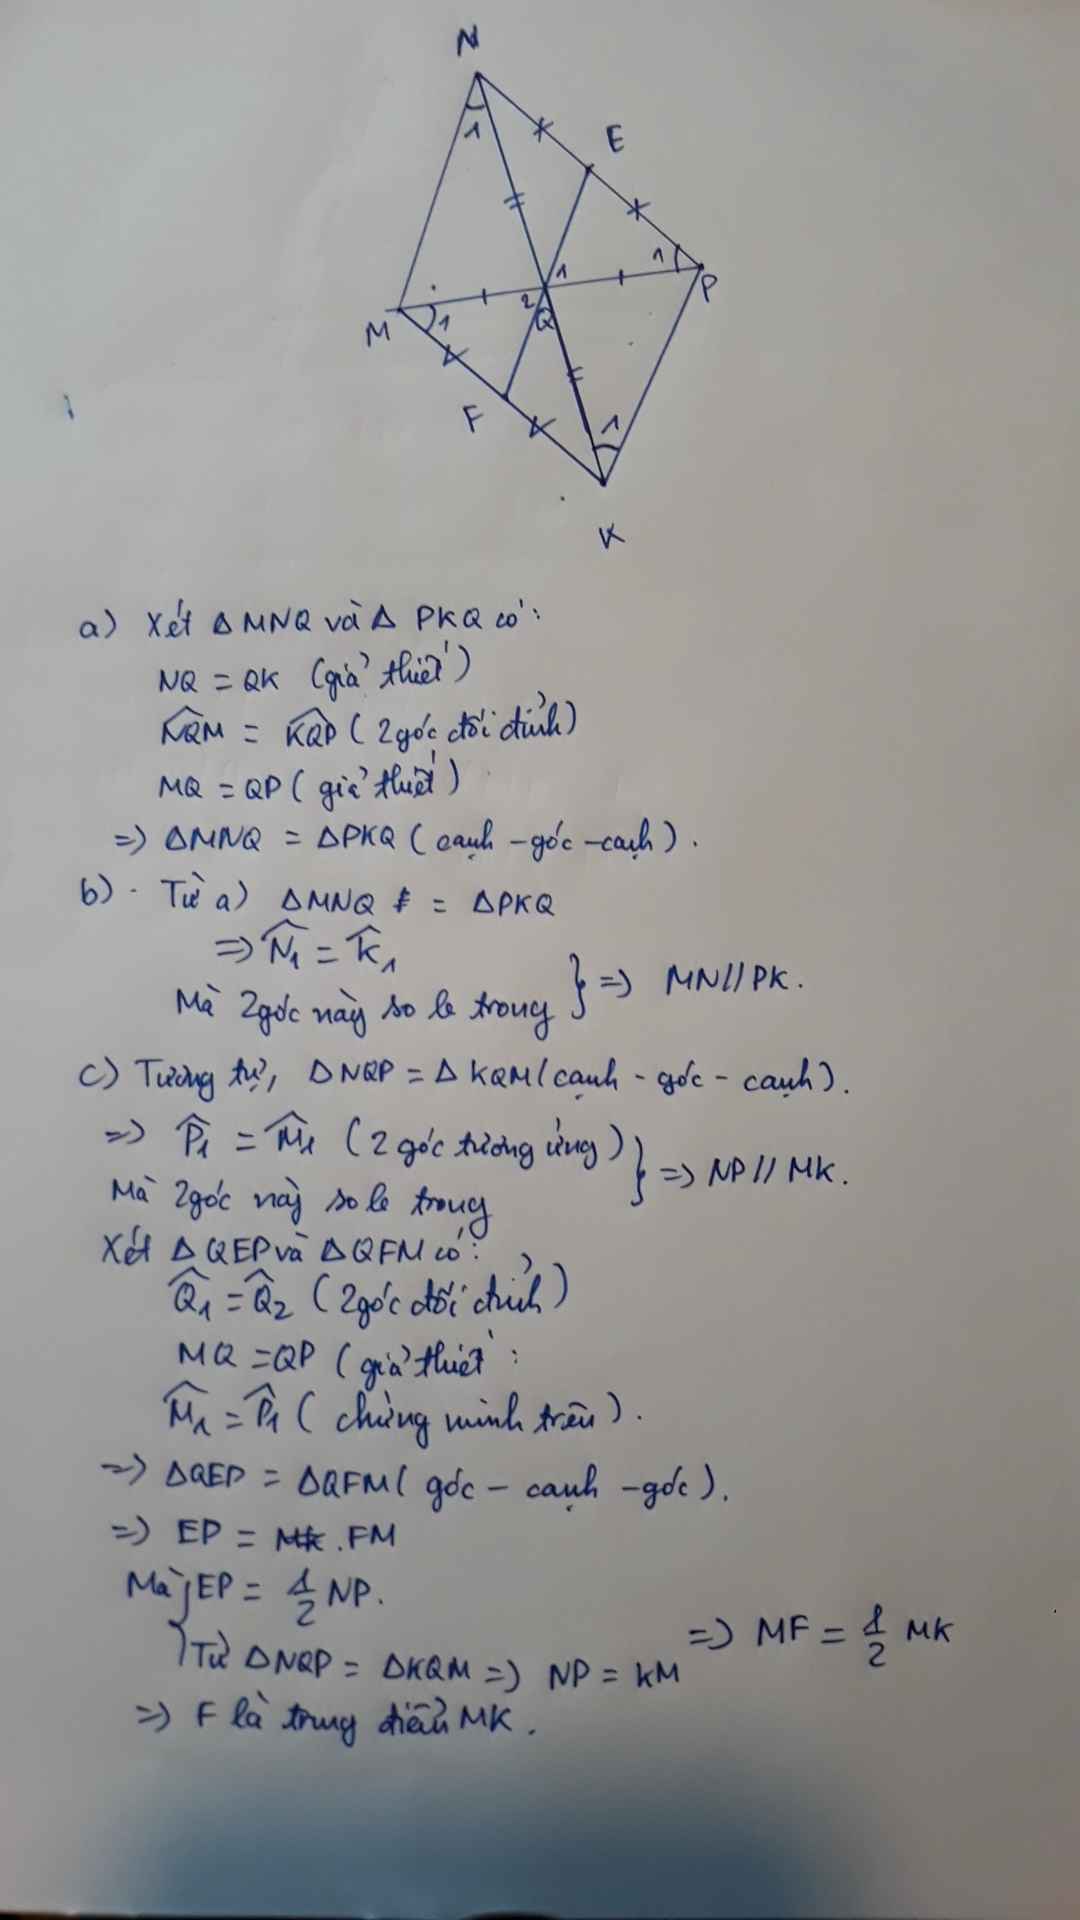 N
1
E
1
P
1
2
Q
M
1
F
1
K
a) Xét Δ MNQ và Δ PKQ có:
NQ = QK (giả thiết)
\widehat{NQM} = \widehat{KQP} (2 góc đối đỉnh)
MQ = QP (giả thiết)
=> ΔMNQ = ΔPKQ (cạnh - góc - cạnh).
b) - Từ a) ΔMNQ = ΔPKQ
=> \widehat{N_1} = \widehat{K_1}
Mà 2 góc này so le trong } => MN // PK.
c) Tương tự, ΔNQP = Δ KQM (cạnh - góc - cạnh).
=> \widehat{P_1} = \widehat{M_1} (2 góc tương ứng)
Mà 2 góc này so le trong } => NP // MK.
Xét Δ QEP và Δ QFM có:
\widehat{Q_1} = \widehat{Q_2} (2 góc đối đỉnh)
MQ = QP (giả thiết :
\widehat{M_1} = \widehat{P_1} (chứng minh trên).
=> ΔQEP = ΔQFM (góc - cạnh - góc).
=> EP = FM
Mà { EP = 1/2 NP.
Từ ΔNQP = ΔKQM => NP = KM => MF = 1/2 MK
=> F là trung điểm MK.